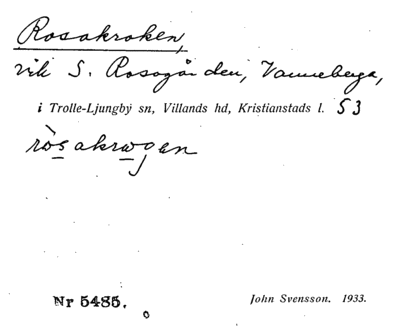 Rosakroken,
vik S. Rosogården, Vanneberga,
i Trolle-Ljungby sn, Villands hd, Kristianstads l. 53
ròsakrωgen
Nr 5485.
John Svensson. 1933.